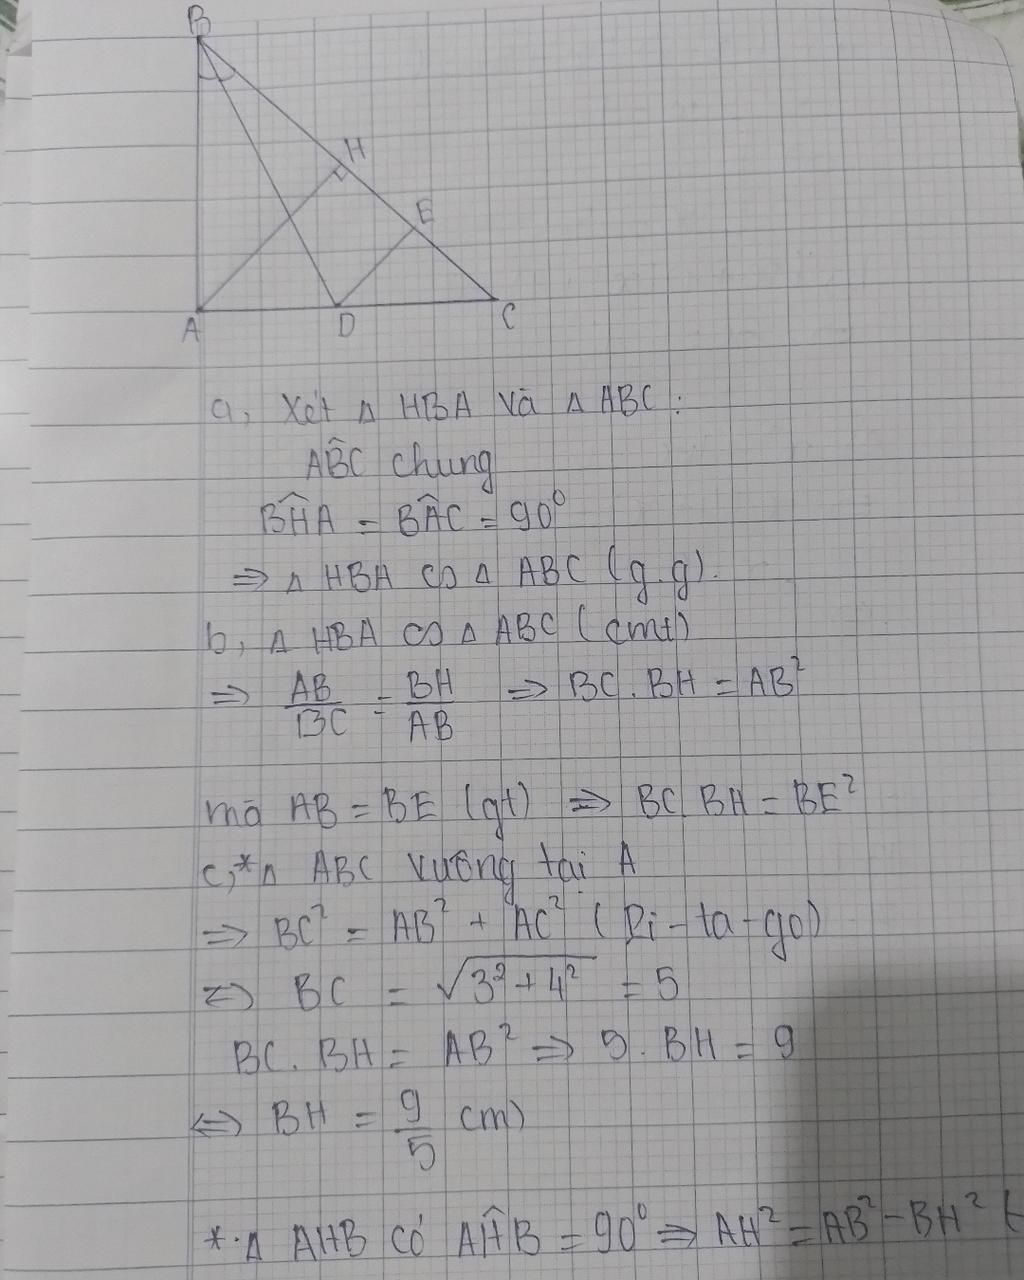 B
H
E
A D C
a, Xét Δ HBA và Δ ABC :
AB̂C chung
BĤA = BÂC = 90⁰
⇒ Δ HBA ∽ Δ ABC (g.g).
b, Δ HBA ∽ Δ ABC (cmt)
⇒ AB/BC = BH/AB ⇒ BC . BH = AB²
mà AB = BE (gt) ⇒ BC . BH = BE²
c,* Δ ABC vuông tại A
⇒ BC² = AB² + AC² (Pi-ta-go)
⇔ BC = √(3² + 4²) = 5
BC. BH = AB² ⇒ 5. BH = 9
⇔ BH = 9/5 cm)
*. Δ AHB có AĤB = 90⁰ ⇒ AH² = AB² - BH² (